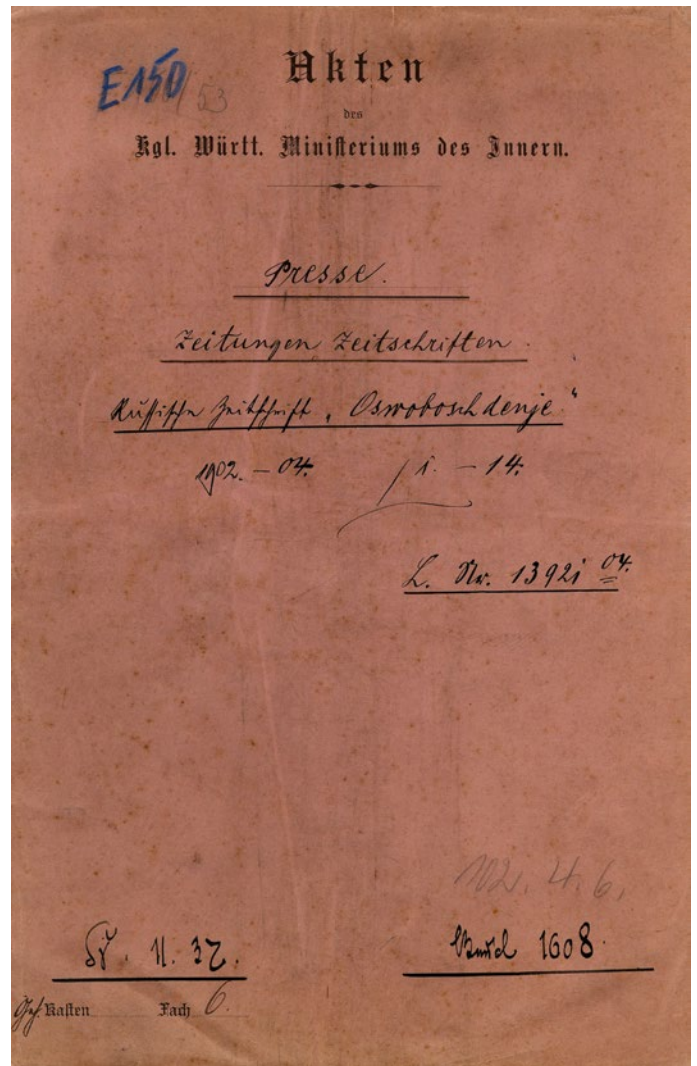 E 150
53
Akten
des
Kgl. Württ. Ministeriums des Innern.
Presse.
Zeitungen, Zeitschriften.
Russische Zeitschrift „Oswoboschdenje“
1902. – 04. / 1. – 14.
L. Nr. 13921 04.
102. 4. 6.
11. 37.
Büschel 1608.
Geh. Kasten Fach 6.